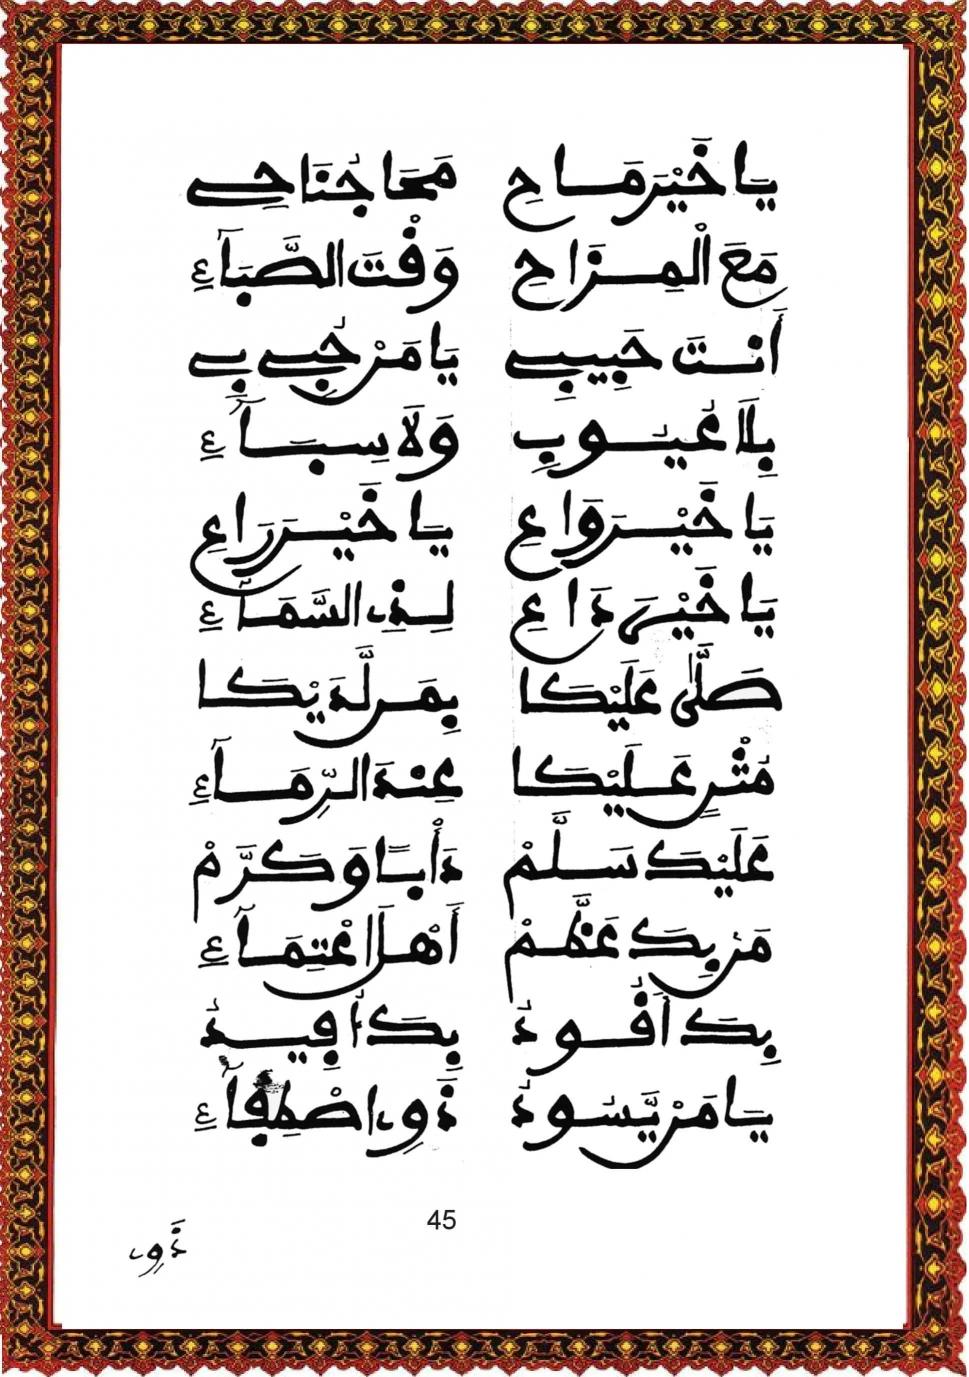 يَا خَيْرَ مَاحِ مَحَا جُنَاحِي
مَعَ الْمِزَاحِ وَقْتَ الصَّبَآءِ
أَنتَ حَبِيبِي يَا مَنْ حُبِي بِي
بِلَا عُيُوبِ وَلَا سِبَآءِ
يَا خَيْرَ وَاعِ يَا خَيْرَ رَاعِ
يَا خَيْرَ دَاعِ لِذِي السَّمَآءِ
صَلَّى عَلَيْكَا بِمَن لَّدَيْكَا
مُثْنٍ عَلَيْكَا عِنْدَ الرِّمَآءِ
عَلَيْكَ سَلَّمْ دَأْبًا وَكَرَّمْ
مَن بِكَ عَظَّمْ أَهْلَ اعْتِمَآءِ
بِكَ أَقُودُ بِكَ أُفِيدُ
يَا مَنْ يَّسُودُ ذَوِي اصْطِفَآءِ
45
ذَوِي